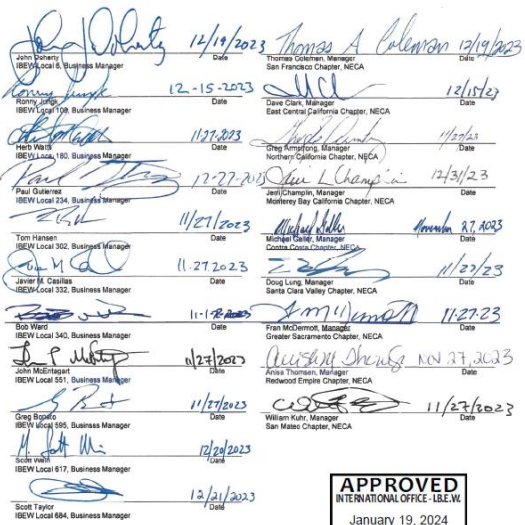 John Doherty 12/19/2023
John Doherty Date
IBEW Local 6, Business Manager
12-15-2023
Ronny Jungk Date
IBEW Local 100, Business Manager
11-27-2023
Herb Watts Date
IBEW Local 180, Business Manager
Paul 12-27-2023
Paul Gutierrez Date
IBEW Local 234, Business Manager
11/27/2023
Tom Hansen Date
IBEW Local 302, Business Manager
11.27.2023
Javier M. Casillas Date
IBEW Local 332, Business Manager
Bob Ward Date
IBEW Local 340, Business Manager
11/27/2023
John McEntagart Date
IBEW Local 551, Business Manager
11/27/2023
Greg Bonato Date
IBEW Local 595, Business Manager
12/20/2023
Date
IBEW Local 617, Business Manager
12/21/2023
Scott Taylor Date
IBEW Local 684, Business Manager
Thomas A Coleman 12/19/2023
Thomas Coleman, Manager Date
San Francisco Chapter, NECA
12/15/23
Dave Clark, Manager Date
East Central California Chapter, NECA
Greg Armstrong, Manager Date
Northern California Chapter, NECA
Jeri L Champlin 12/3/23
Jerri Champlin, Manager Date
Monterey Bay California Chapter, NECA
Michael Geller November 27, 2023
Michael Geller, Manager Date
Contra Costa Chapter, NECA
Doug Lung, Manager Date
Santa Clara Valley Chapter, NECA
11-27-23
Fran McDermott, Manager Date
Greater Sacramento Chapter, NECA
NOV 27, 2023
Anisa Thomsen, Manager Date
Redwood Empire Chapter, NECA
11/27/2023
William Kuhr, Manager Date
San Mateo Chapter, NECA
APPROVED
INTERNATIONAL OFFICE - I.B.E.W.
January 19, 2024